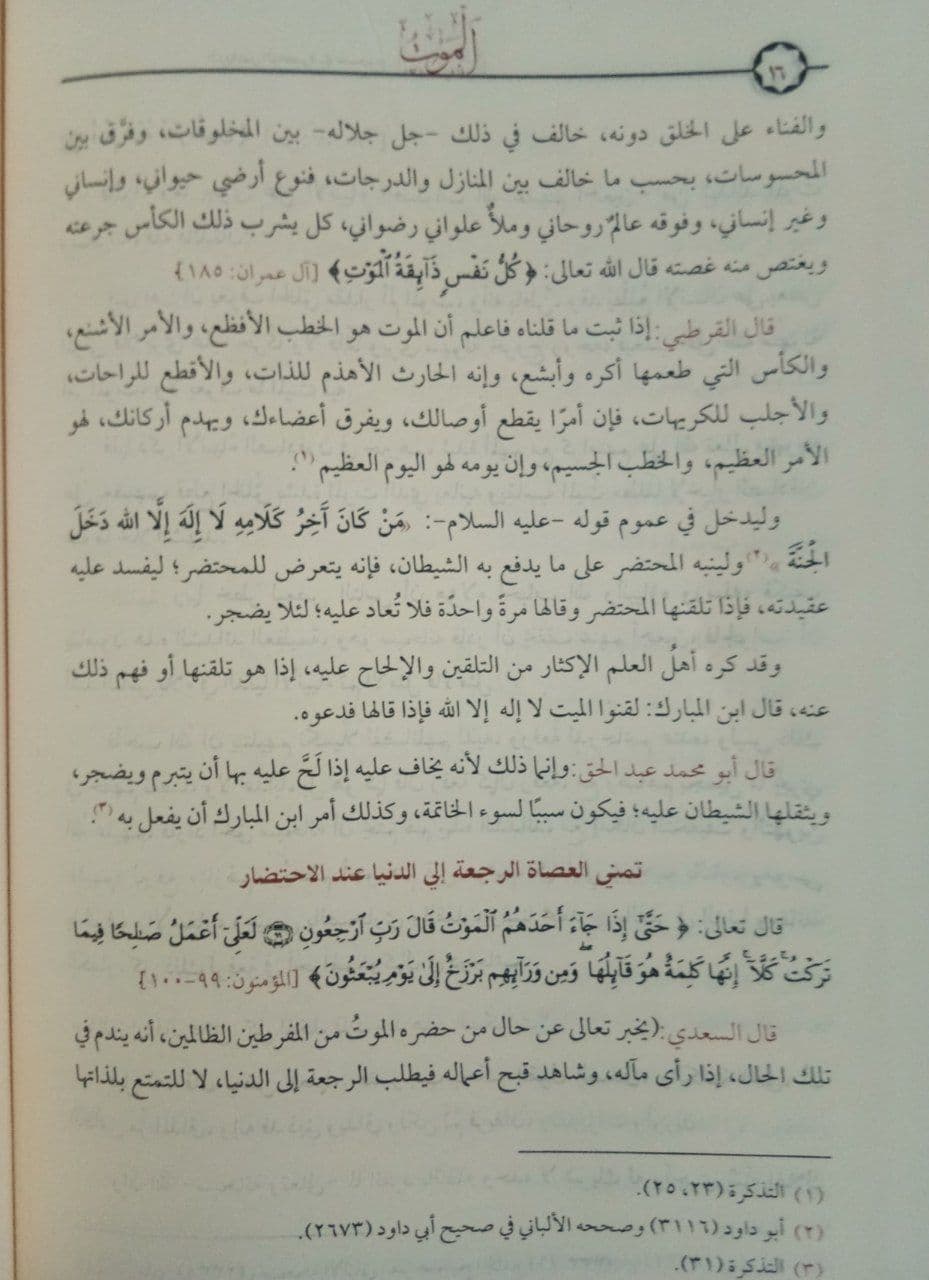 الموت
١٦
والفناء على الخلق دونه، خالف في ذلك -جل جلاله- بين المخلوقات، وفرَّق بين
المحسوسات، بحسب ما خالف بين المنازل والدرجات، فنوع أرضي حيواني، وإنساني
وغير إنساني، وفوقه عالمٌ روحاني وملأٌ علواني رضواني، كل يشرب ذلك الكأس جرعته
ويغتص منه غصته قال الله تعالى: ﴿كُلُّ نَفْسٍ ذَآئِقَةُ ٱلْمَوْتِ﴾ [آل عمران: ١٨٥]
قال القرطبي: إذا ثبت ما قلناه فاعلم أن الموت هو الخطب الأفظع، والأمر الأشنع،
والكأس التي طعمها أكره وأبشع، وإنه الحارث الأهذم للذات، والأقطع للراحات،
والأجلب للكريهات، فإن أمرًا يقطع أوصالك، ويفرق أعضاءك، ويهدم أركانك، لهو
الأمر العظيم، والخطب الجسيم، وإن يومه لهو اليوم العظيم (١).
وليدخل في عموم قوله -عليه السلام-: «مَنْ كَانَ آخِرُ كَلَامِهِ لَا إِلَهَ إِلَّا الله دَخَلَ
الجَنَّةَ» (٢) ولينبه المحتضر على ما يدفع به الشيطان، فإنه يتعرض للمحتضر؛ ليفسد عليه
عقيدته، فإذا تلقنها المحتضر وقالها مرةً واحدًة فلا تُعاد عليه؛ لئلا يضجر.
وقد كره أهلُ العلم الإكثار من التلقين والإلحاح عليه، إذا هو تلقنها أو فهم ذلك
عنه، قال ابن المبارك: لقنوا الميت لا إله إلا الله فإذا قالها فدعوه.
قال أبو محمد عبد الحق: وإنما ذلك لأنه يخاف عليه إذا لَحَّ عليه بها أن يتبرم ويضجر،
ويثقلها الشيطان عليه؛ فيكون سببًا لسوء الخاتمة، وكذلك أمر ابن المبارك أن يفعل به (٣).
تمني العصاة الرجعة إلي الدنيا عند الاحتضار
قال تعالى: ﴿حَتَّىٰٓ إِذَا جَآءَ أَحَدَهُمُ ٱلْمَوْتُ قَالَ رَبِّ ٱرْجِعُونِ ۝٩٩ لَعَلِّىٓ أَعْمَلُ صَـٰلِحًا فِيمَا
تَرَكْتُ ۚ كَلَّآ ۚ إِنَّهَا كَلِمَةٌ هُوَ قَآئِلُهَا ۖ وَمِن وَرَآئِهِم بَرْزَخٌ إِلَىٰ يَوْمِ يُبْعَثُونَ﴾ [المؤمنون: ٩٩-١٠٠]
قال السعدي: (يخبر تعالى عن حال من حضره الموتُ من المفرطين الظالمين، أنه يندم في
تلك الحال، إذا رأى مآله، وشاهد قبح أعماله فيطلب الرجعة إلى الدنيا، لا للتمتع بلذاتها
(١) التذكرة (٢٣، ٢٥).
(٢) أبو داود (٣١١٦) وصححه الألباني في صحيح أبي داود (٢٦٧٣).
(٣) التذكرة (٣١).